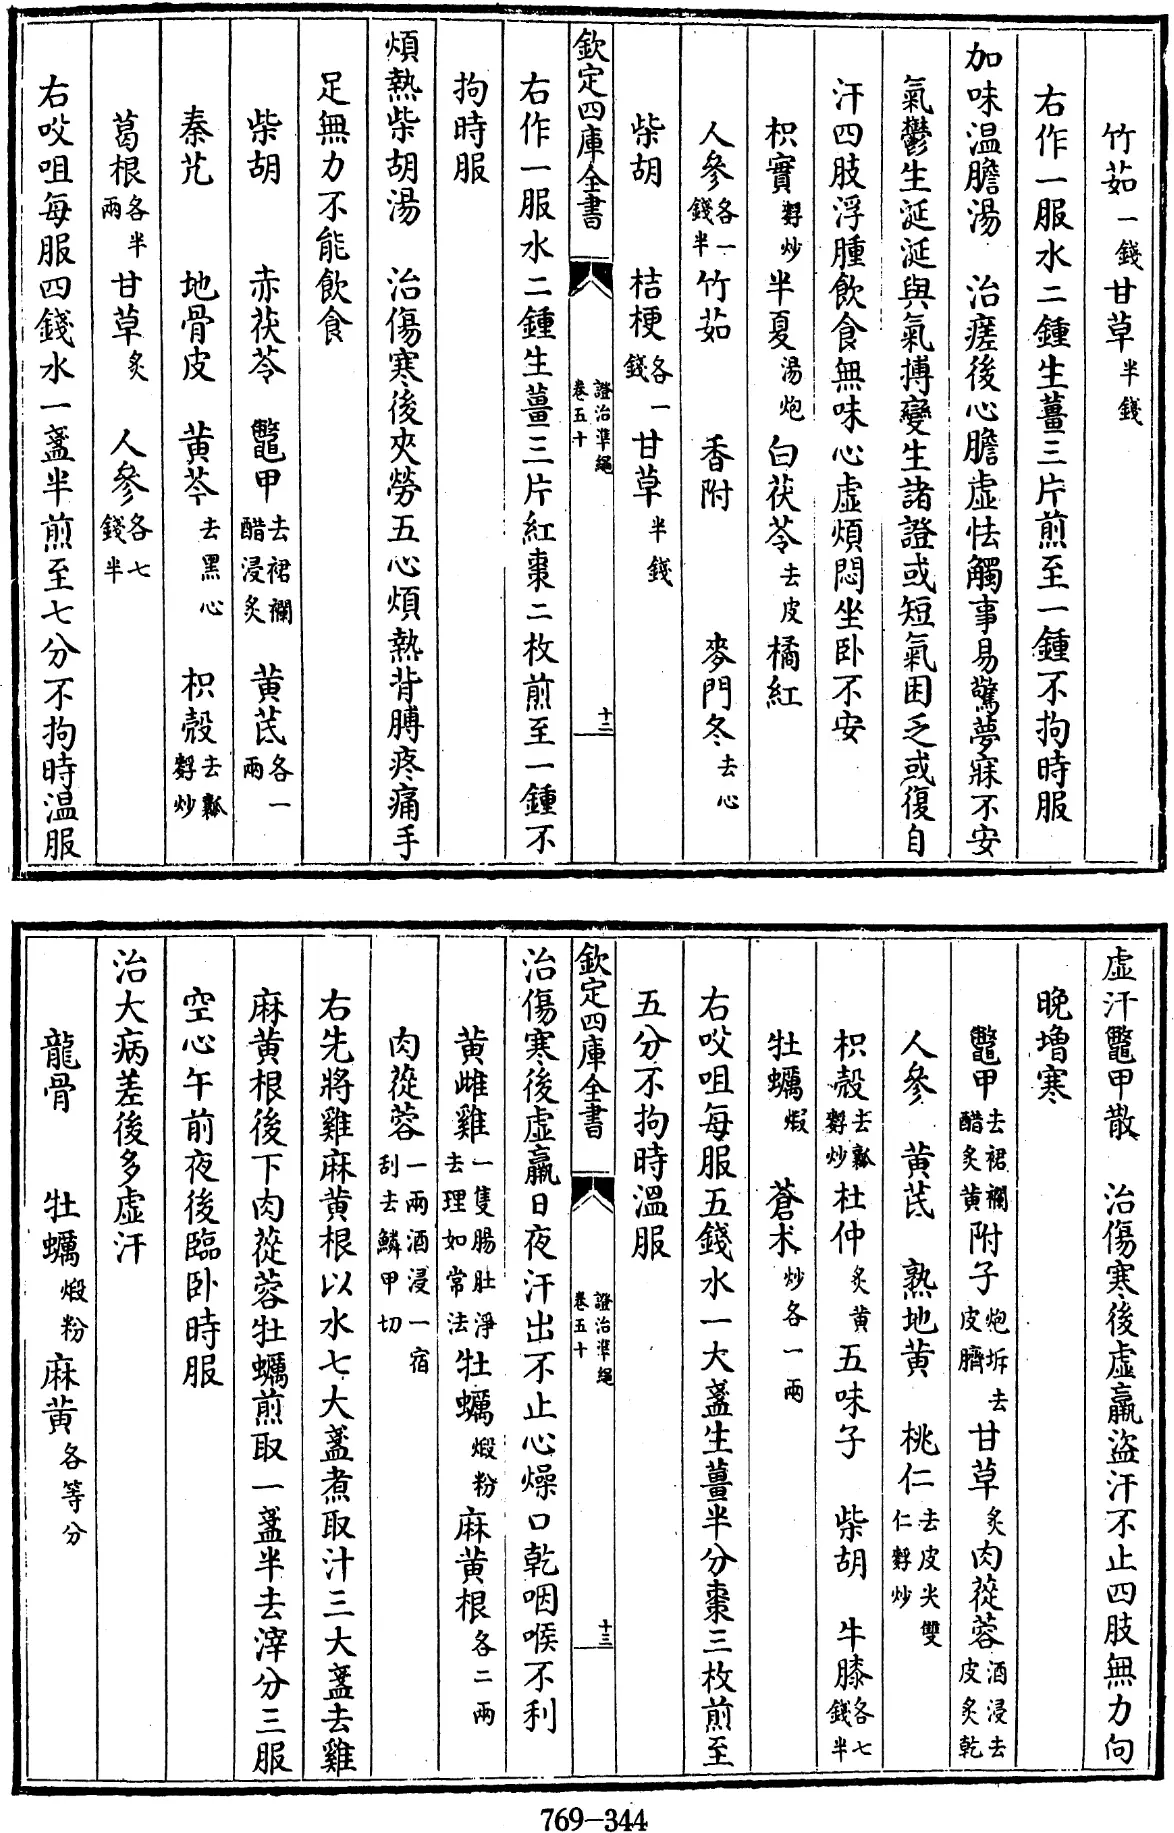 竹茹一錢甘草半錢
右作一服水二鍾生薑三片煎至一鍾不拘時服
加味温膽湯　治瘥後心膽虛怯觸事易驚夢寐不安
氣鬱生涎涎與氣搏變生諸證或短氣困乏或復自
汗四肢浮腫飲食無味心虛煩悶坐卧不安
枳實麩炒半夏湯炮白茯苓去皮橘紅
人參各一錢半竹茹　香附　麥門冬去心
柴胡　桔梗各一錢甘草半錢
欽定四庫全書　證治準繩卷五十　十三
右作一服水二鍾生薑三片紅棗二枚煎至一鍾不
拘時服
煩熱柴胡湯　治傷寒後夾勞五心煩熱背膊疼痛手
足無力不能飲食
柴胡　赤茯苓　鼈甲去裙襴醋浸炙　黄芪各一兩
秦艽　地骨皮　黄芩去黑心　枳殼去瓤麩炒
葛根各半兩甘草炙　人參各七錢半
右㕮咀每服四錢水一盞半煎至七分不拘時温服
虛汗鼈甲散　治傷寒後虛羸盜汗不止四肢無力向
晚增寒
鼈甲去裙襴醋炙黄附子炮坼去皮臍甘草炙肉蓯蓉酒浸去皮炙乾
人參　黄芪　熟地黄　桃仁去皮尖雙仁麩炒
枳殼去瓤麩炒杜仲炙黄五味子　柴胡　牛膝各七錢半
牡蠣煆　蒼术炒各一兩
右㕮咀每服五錢水一大盞生薑半分棗三枚煎至
五分不拘時溫服
欽定四庫全書　證治準繩卷五十　十三
治傷寒後虛羸日夜汗出不止心燥口乾咽喉不利
黄雌雞一隻腸肚淨去理如常法牡蠣煆粉麻黄根各二兩
肉蓯蓉一兩酒浸一宿刮去鱗甲切
右先將雞麻黄根以水七大盞煮取汁三大盞去雞
麻黄根後下肉蓯蓉牡蠣煎取一盞半去滓分三服
空心午前夜後臨卧時服
治大病差後多虛汗
龍骨　牡蠣煆粉麻黄各等分
769-344